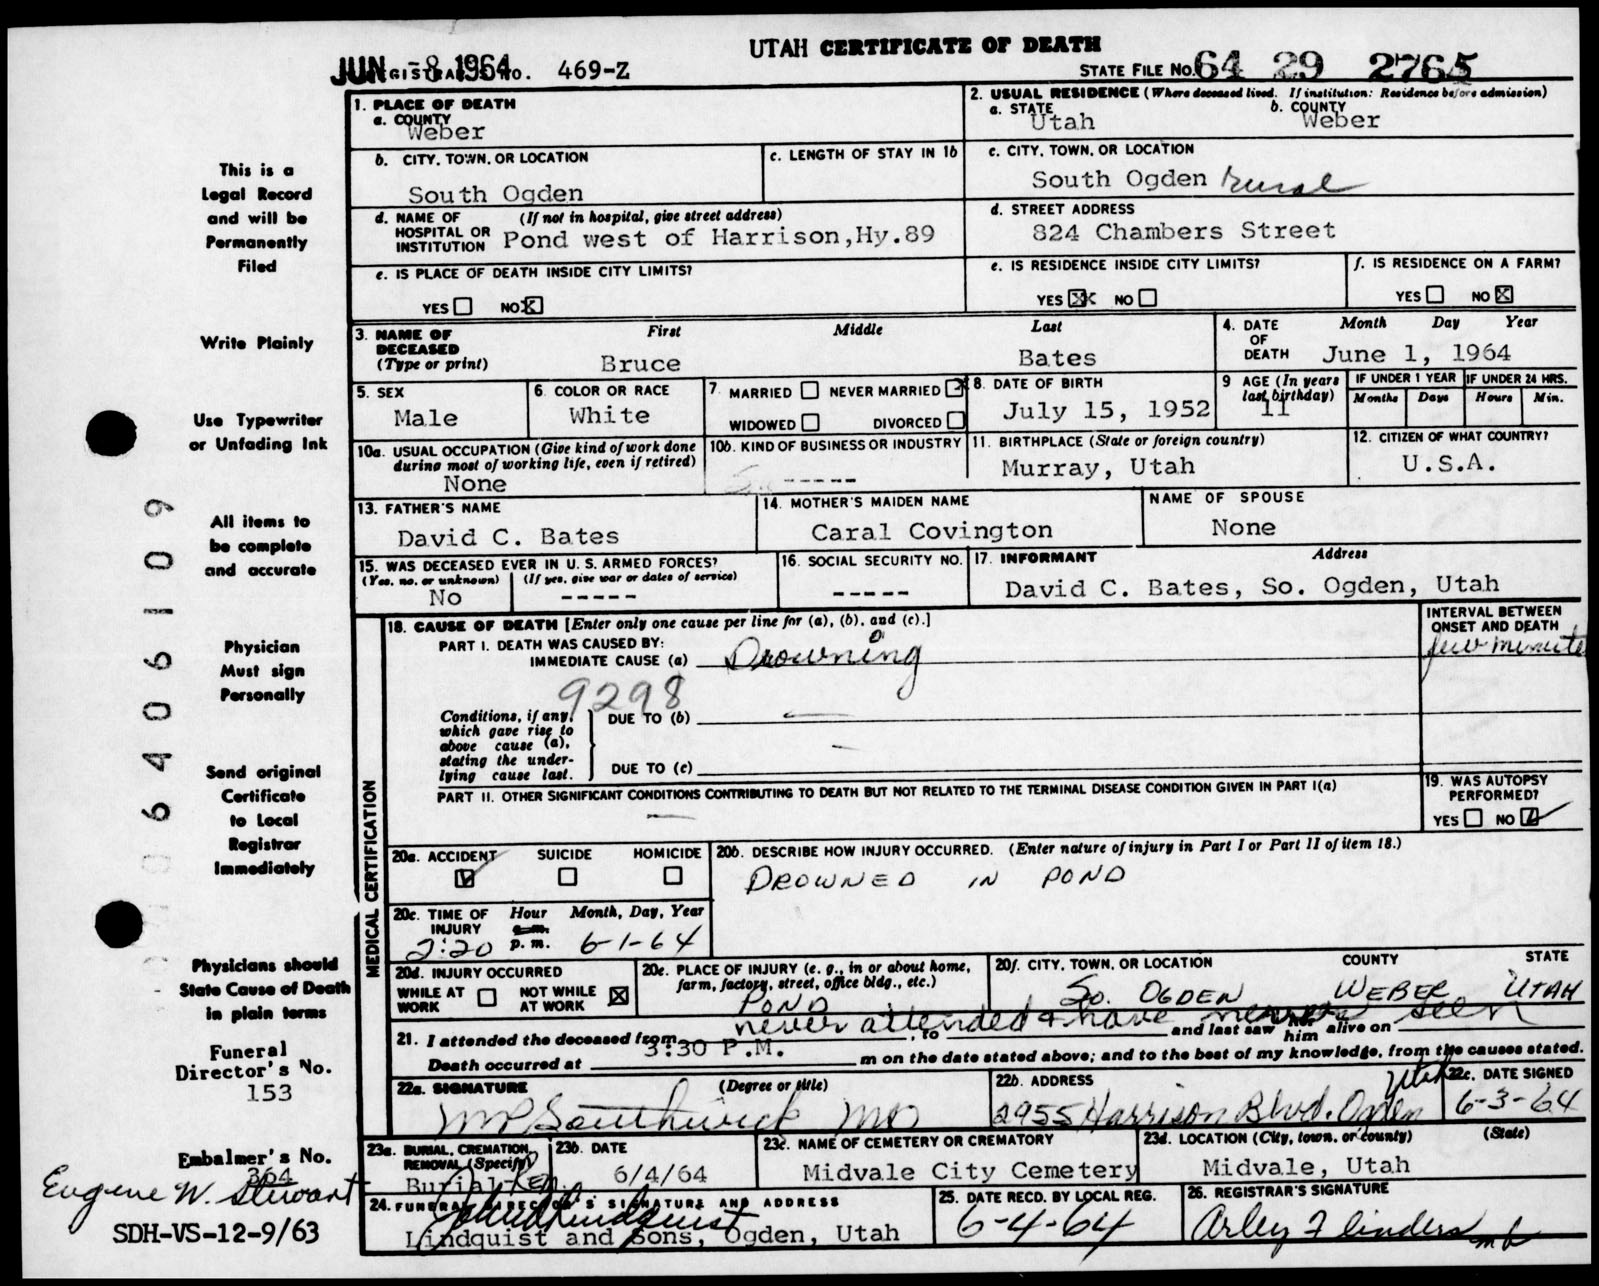 UTAH CERTIFICATE OF DEATH
JUN -8 1964
REGISTRAR'S NO. 469-Z
STATE FILE NO. 64 29 2765
This is a
Legal Record
and will be
Permanently
Filed
Write Plainly
Use Typewriter
or Unfading Ink
All items to
be complete
and accurate
Physician
Must sign
Personally
Send original
Certificate
to Local
Registrar
Immediately
Physicians should
State Cause of Death
in plain terms
Funeral
Director's No.
153
Embalmer's No.
364
Eugene W. Stewart
SDH-VS-12-9/63
6406109
1. PLACE OF DEATH
a. COUNTY
Weber
2. USUAL RESIDENCE (Where deceased lived. If institution: Residence before admission)
a. STATE
Utah
b. COUNTY
Weber
b. CITY, TOWN, OR LOCATION
South Ogden
c. LENGTH OF STAY IN 1b
c. CITY, TOWN, OR LOCATION
South Ogden rural
d. NAME OF HOSPITAL OR INSTITUTION (If not in hospital, give street address)
Pond west of Harrison,Hy.89
d. STREET ADDRESS
824 Chambers Street
e. IS PLACE OF DEATH INSIDE CITY LIMITS?
YES NO X
e. IS RESIDENCE INSIDE CITY LIMITS?
YES X NO
f. IS RESIDENCE ON A FARM?
YES NO X
3. NAME OF DECEASED (Type or print)
First Middle Last
Bruce Bates
4. DATE OF DEATH
Month Day Year
June 1, 1964
5. SEX
Male
6. COLOR OR RACE
White
7. MARRIED NEVER MARRIED X
WIDOWED DIVORCED
8. DATE OF BIRTH
July 15, 1952
9 AGE (In years last birthday)
11
IF UNDER 1 YEAR
Months Days
IF UNDER 24 HRS.
Hours Min.
10a. USUAL OCCUPATION (Give kind of work done during most of working life, even if retired)
None
10b. KIND OF BUSINESS OR INDUSTRY
-----
11. BIRTHPLACE (State or foreign country)
Murray, Utah
12. CITIZEN OF WHAT COUNTRY?
U.S.A.
13. FATHER'S NAME
David C. Bates
14. MOTHER'S MAIDEN NAME
Caral Covington
NAME OF SPOUSE
None
15. WAS DECEASED EVER IN U. S. ARMED FORCES?
(Yes, no, or unknown) (If yes, give war or dates of service)
No -----
16. SOCIAL SECURITY NO.
-----
17. INFORMANT Address
David C. Bates, So. Ogden, Utah
MEDICAL CERTIFICATION
18. CAUSE OF DEATH [Enter only one cause per line for (a), (b), and (c).]
PART I. DEATH WAS CAUSED BY:
IMMEDIATE CAUSE (a) Drowning
INTERVAL BETWEEN ONSET AND DEATH
few minutes
9298
Conditions, if any, which gave rise to above cause (a), stating the underlying cause last.
DUE TO (b) —
DUE TO (c) —
PART II. OTHER SIGNIFICANT CONDITIONS CONTRIBUTING TO DEATH BUT NOT RELATED TO THE TERMINAL DISEASE CONDITION GIVEN IN PART I(a)
—
19. WAS AUTOPSY PERFORMED?
YES NO ✓
20a. ACCIDENT ✓ SUICIDE HOMICIDE
20b. DESCRIBE HOW INJURY OCCURRED. (Enter nature of injury in Part I or Part II of item 18.)
DROWNED IN POND
20c. TIME OF INJURY
Hour Month, Day, Year
2:20 a.m. p.m. 6-1-64
20d. INJURY OCCURRED
WHILE AT WORK NOT WHILE AT WORK X
20e. PLACE OF INJURY (e. g., in or about home, farm, factory, street, office bldg., etc.)
POND
20f. CITY, TOWN, OR LOCATION COUNTY STATE
SO. OGDEN WEBER UTAH
never attended & have never seen
21. I attended the deceased from , to and last saw her him alive on
Death occurred at 3:30 P.M. m on the date stated above; and to the best of my knowledge, from the causes stated.
22a. SIGNATURE (Degree or title)
MP Southwick MD
22b. ADDRESS
2955 Harrison Blvd. Ogden Utah
22c. DATE SIGNED
6-3-64
23a. BURIAL, CREMATION, REMOVAL (Specify)
Burial-Rem
23b. DATE
6/4/64
23c. NAME OF CEMETERY OR CREMATORY
Midvale City Cemetery
23d. LOCATION (City, town, or county) (State)
Midvale, Utah
24. FUNERAL DIRECTOR'S SIGNATURE AND ADDRESS
Lindquist and Sons, Ogden, Utah
25. DATE RECD. BY LOCAL REG.
6-4-64
26. REGISTRAR'S SIGNATURE
Arley Flinders